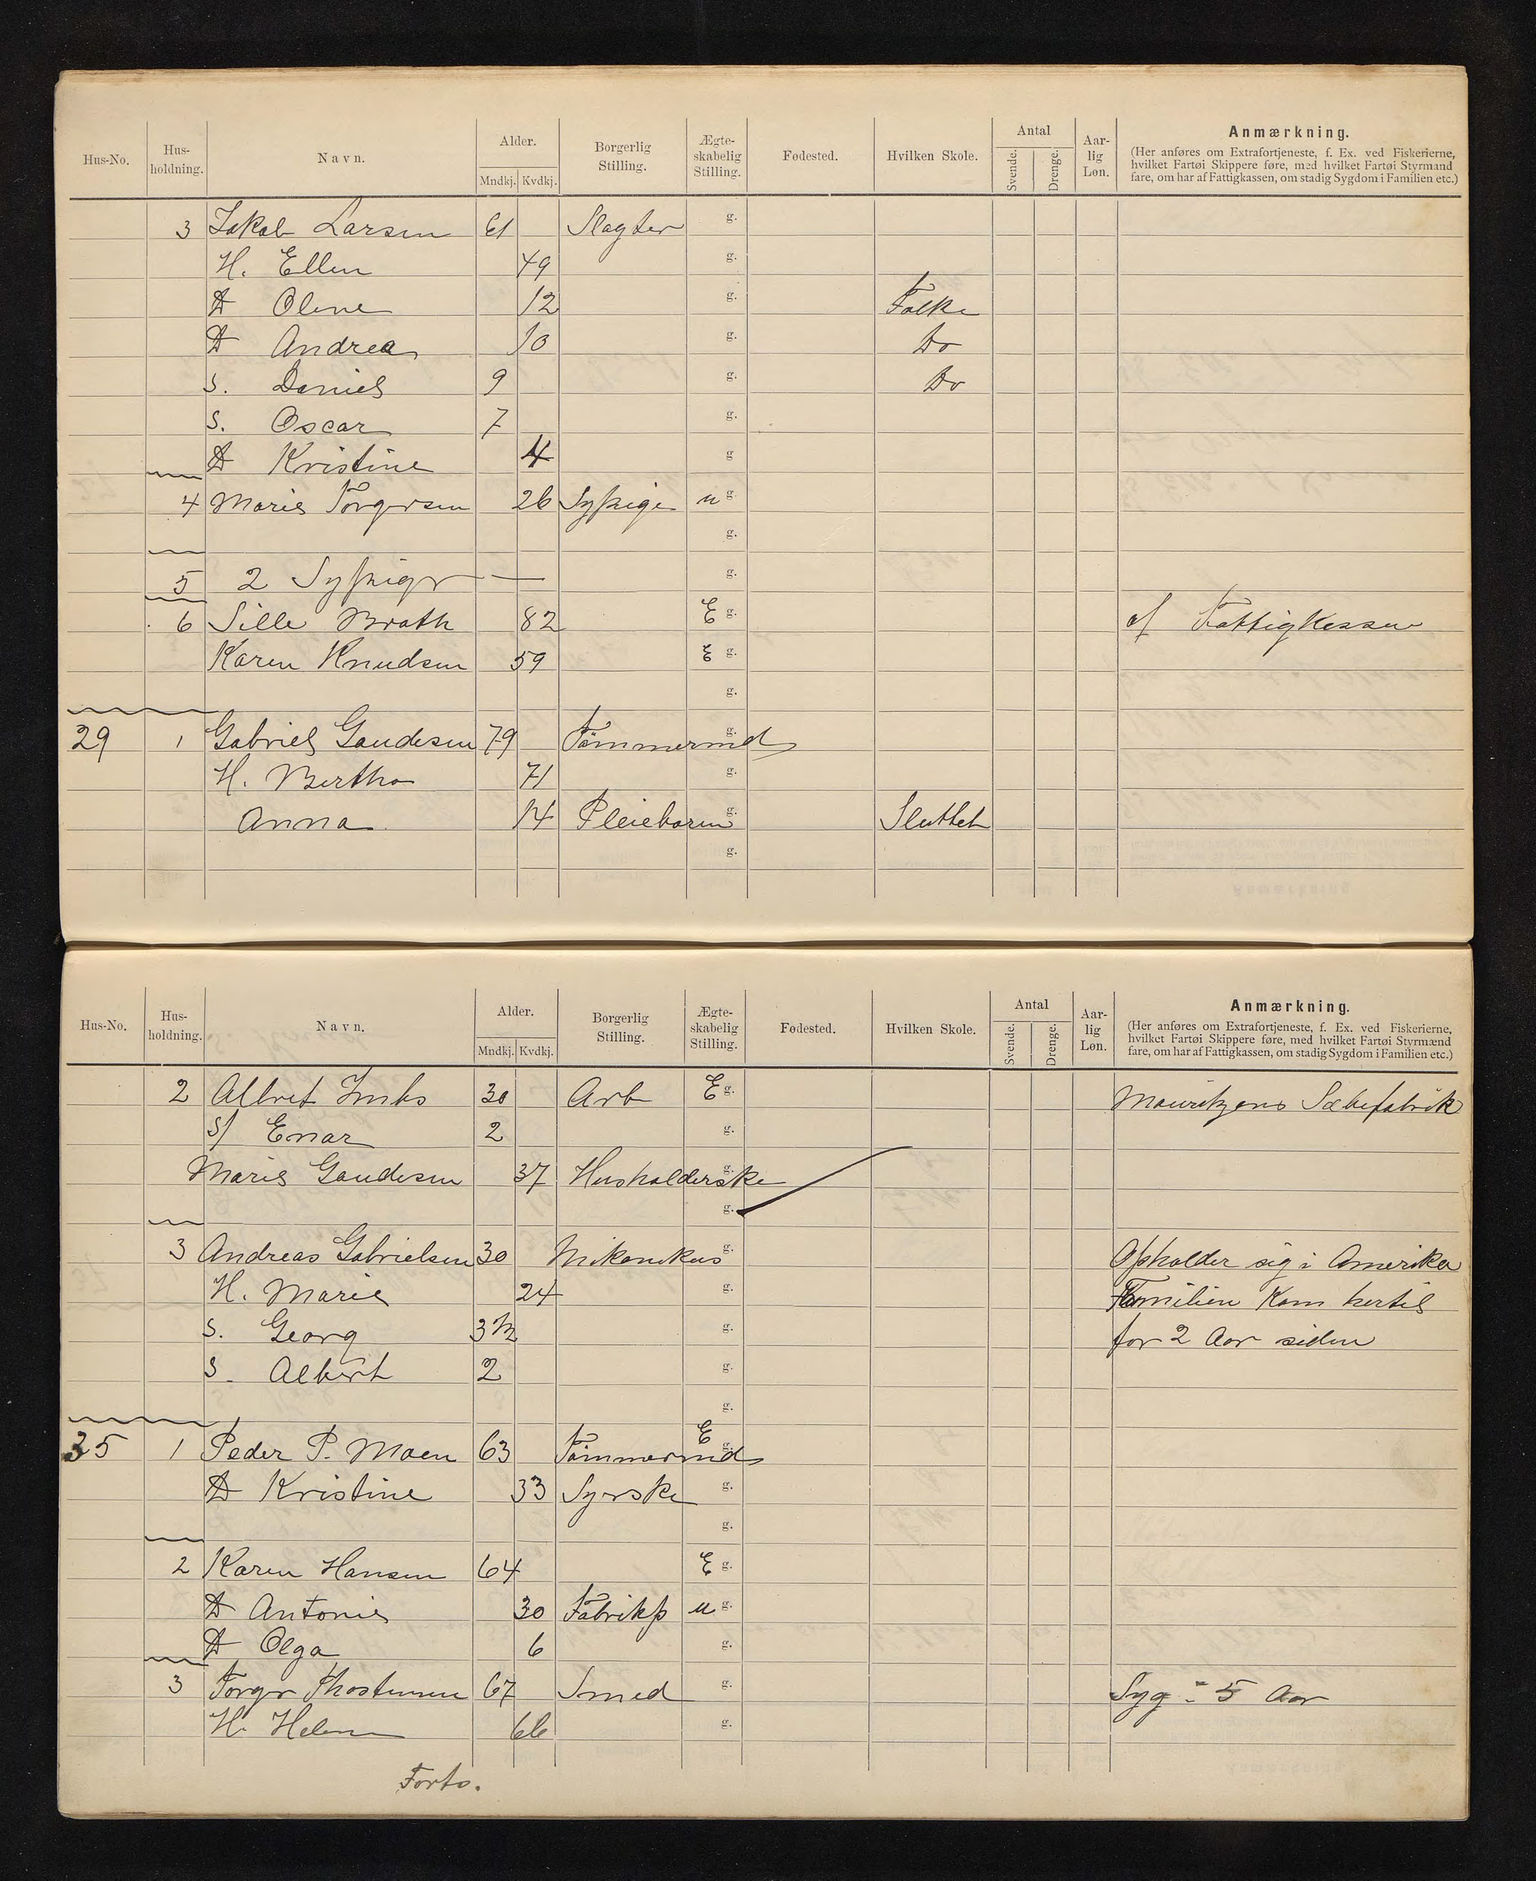 Hus-No. Hus-holdning. Navn. Alder. Mndkj. Kvdkj. Borgerlig Stilling. Ægte-skabelig Stilling. Fødested. Hvilken Skole. Antal Svende. Drenge. Aar-lig Løn. Anmærkning.
(Her anføres om Extrafortjeneste, f. Ex. ved Fiskerierne,
hvilket Fartøi Skippere føre, med hvilket Fartøi Styrmænd
fare, om har af Fattigkassen, om stadig Sygdom i Familien etc.)
3 Jakob Larsen 61 Slagter g.
H. Ellen 49 g.
D Oline 12 g. Folke
D Andrea 10 g. Do
S. Daniel 9 g. Do
S. Oscar 7 g.
D Kristine 4 g
4 Marie Torgersen 26 Sypige u g.
g.
5 2 Sypiger — g.
6 Sille Brath 82 E g. af Fattigkassen
Karen Knudsen 59 E g.
g.
29 1 Gabriel Gaudesen 79 Tømmermd g.
H. Bertha 71 g.
Anna 14 Pleiebarn g. Sluttet
g.
Hus-No. Hus-holdning. Navn. Alder. Mndkj. Kvdkj. Borgerlig Stilling. Ægte-skabelig Stilling. Fødested. Hvilken Skole. Antal Svende. Drenge. Aar-lig Løn. Anmærkning.
(Her anføres om Extrafortjeneste, f. Ex. ved Fiskerierne,
hvilket Fartøi Skippere føre, med hvilket Fartøi Styrmænd
fare, om har af Fattigkassen, om stadig Sygdom i Familien etc.)
2 Albret 30 Arb E g. Mauritzens Sæbefabrik
S/ Enar 2 g.
Marie Gaudesen 37 Husholderske g.
g.
3 Andreas Gabrielsen 30 Mikanikus g. Opholder sig i Amerika
H. Marie 24 g. Familien Kom hertil
S. Georg 3½ g. for 2 Aar siden
S. Albert 2 g.
g.
35 1 Peder P. Moen 63 Tømmermd E g.
D Kristine 33 Syerske g.
g.
2 Karen Hansen 64 E g.
D Antonie 30 Fabrikp u g.
D Olga 6 g.
3 Torger Thostensen 67 Smed g. Syg i 5 Aar
H. Helene 66 g.
Forts.